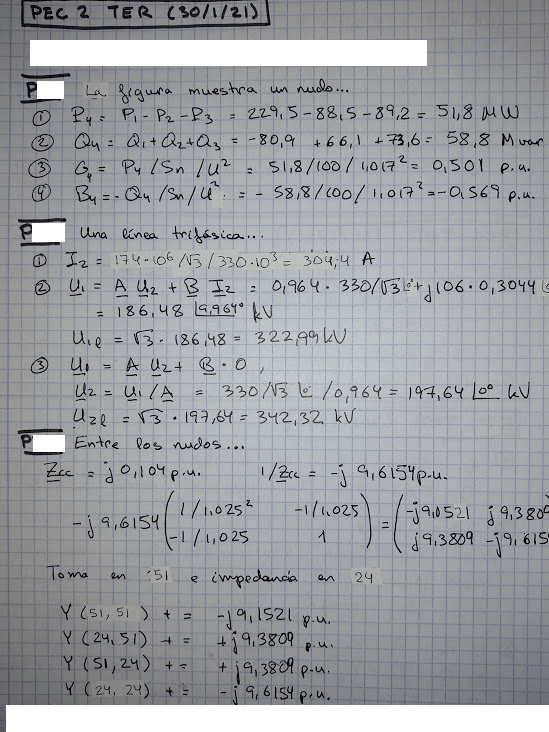 PEC 2 TER (30/1/21)
P La figura muestra un nudo...
① P4 = P1 - P2 - P3 = 229,5 - 88,5 - 89,2 = 51,8 MW
② Q4 = Q1 + Q2 + Q3 = -80,9 + 66,1 + 73,6 = 58,8 Mvar
③ G4 = P4 / Sn / U² = 51,8/100/1,017² = 0,501 p.u.
④ B4 = -Q4 / Sn / U² = - 58,8/100/1,017² = -0,569 p.u.
P Una línea trifásica...
① I2 = 174·10⁶/√3/330·10³ = 304,4 A
② U1 = A U2 + B I2 = 0,964 · 330/√3 ∠0° + j106 · 0,3044 ∠0
= 186,48 ∠9,964° kV
U1l = √3 · 186,48 = 322,99 kV
③ U1 = A U2 + B · 0,
U2 = U1/A = 330/√3 ∠0° /0,964 = 197,64 ∠0° kV
U2l = √3 · 197,64 = 342,32 kV
P Entre los nudos...
Zcc = j 0,104 p.u. 1/Zcc = -j 9,6154 p.u.
-j 9,6154 (1/1,025² -1/1,025 = (-j9,0521 j9,3809
-1/1,025 1) j9,3809 -j9,615
Toma en 51 e impedancia en 24
Y (51, 51) += -j9,1521 p.u.
Y (24, 51) += +j9,3809 p.u.
Y (51, 24) += +j9,3809 p.u.
Y (24, 24) += -j9,6154 p.u.